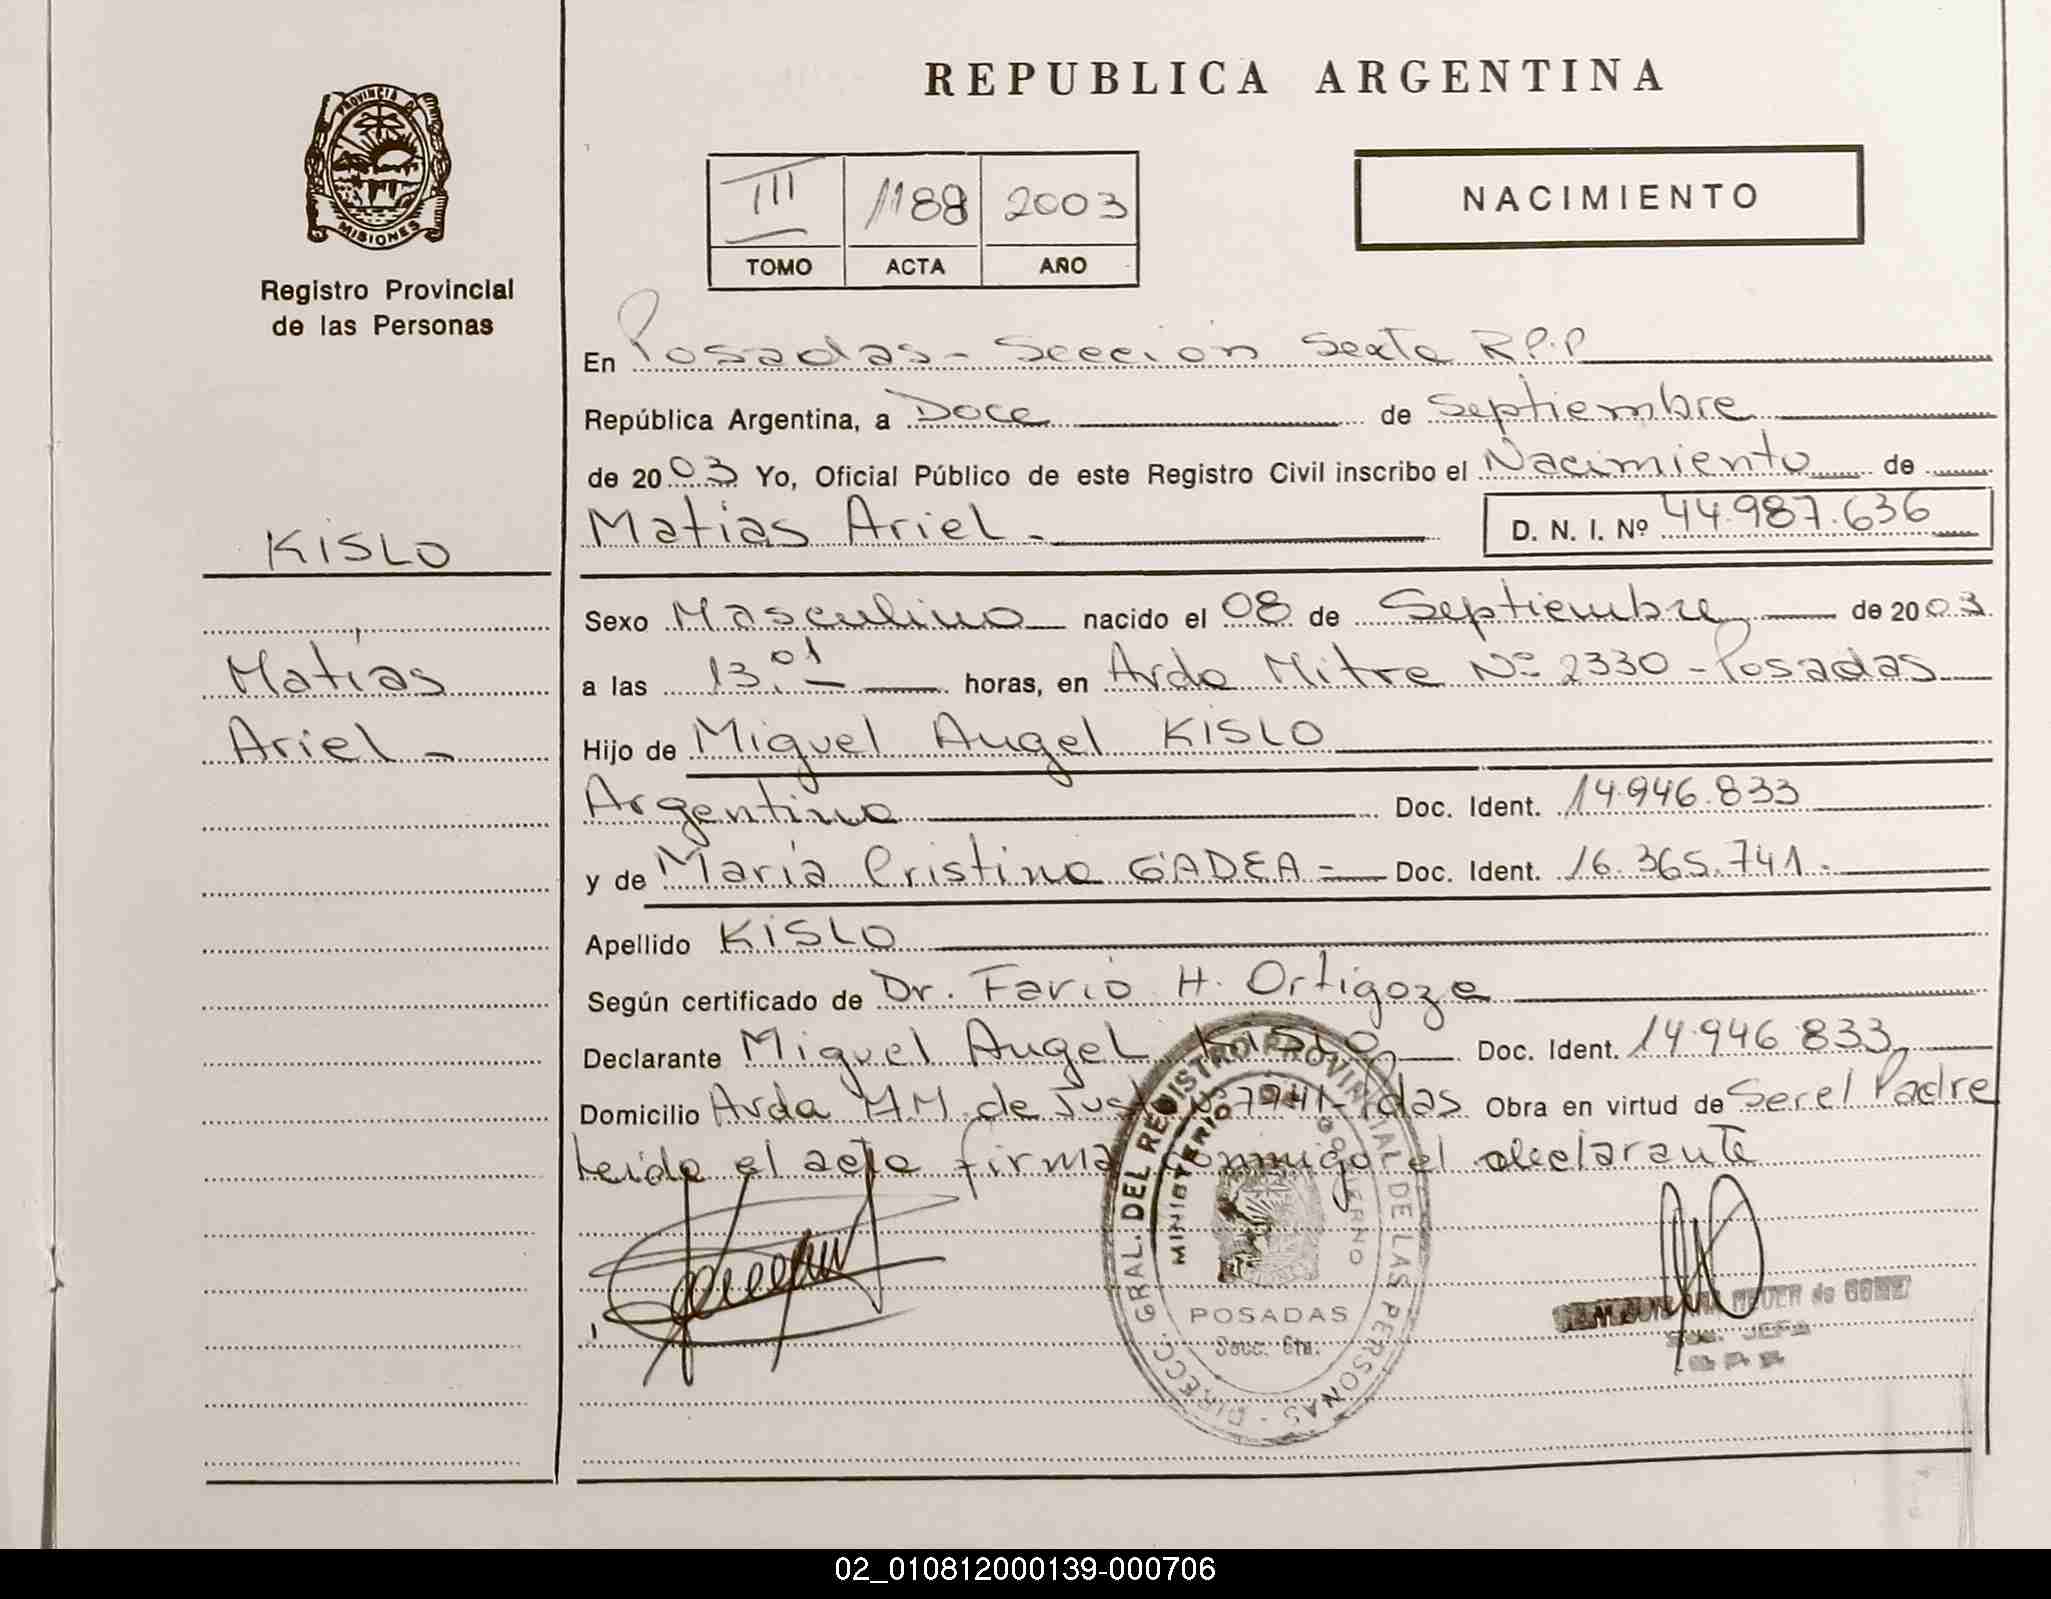 REPUBLICA ARGENTINA
PROVINCIA DE
MISIONES
Registro Provincial
de las Personas
III 1188 2003
TOMO ACTA AÑO
NACIMIENTO
En Posadas - Sección Sexta R.P.P
República Argentina, a Doce de Septiembre
de 2003 Yo, Oficial Público de este Registro Civil inscribo el Nacimiento de
Matías Ariel - D. N. I. Nº 44.987.636
KISLO
Matías
Ariel -
Sexo Masculino nacido el 08 de Septiembre de 2003
a las 13.01 horas, en Avda Mitre Nº 2330 - Posadas
Hijo de Miguel Angel KISLO
Argentino Doc. Ident. 14.946.833
y de María Cristina GADEA = Doc. Ident. 16.365.741.-
Apellido KISLO
Según certificado de Dr. Favio H. Ortigoza
Declarante Miguel Angel KISLO Doc. Ident. 14.946.833
Domicilio Avda M.M. de 7941 - Pdas Obra en virtud de Ser el Padre
Leída el acta firma conmigo el declarante
DIRECC. GRAL. DEL REGISTRO PROVINCIAL DE LAS PERSONAS -
MINISTERIO DE GOBIERNO
POSADAS
Secc. 6ta.
de GOMEZ
JEFA
02_010812000139-000706